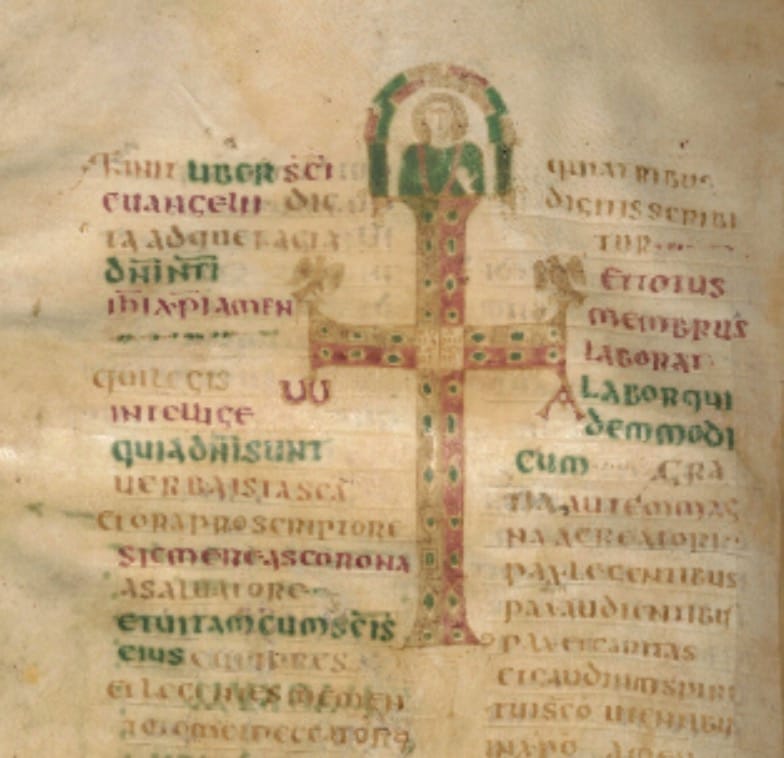 FINIT LIBER SCI
EUANGELII DIC
TA AD QUE FACTA
DNI NTI
IHU XPI AMEN
QUI LEGIS
INTELLIGE
QUIA DNI SUNT
UERBA ISTA SCA
ET ORA PRO SCRIPTORE
SIC MEREAS CORONA
A SALUATORE
ET UITAM CUM SCIS
EIUS
ET LEGENES MEMEN
ω
A
QUI A TRIBUS
DIGITIS SCRIBI
TUR
ET TOTUS
MEMBRUS
LABORAT
LABOR QUI
DEM MODI
CUM GRA
TIA AUTEM MAG
NA A CREATORE
PAX LEGENTIBUS
PAX AUDIENTIBU
PAX ET CARITAS
ET GAUDIUM SPIRI
TUI SCO
IN XPO AMEN